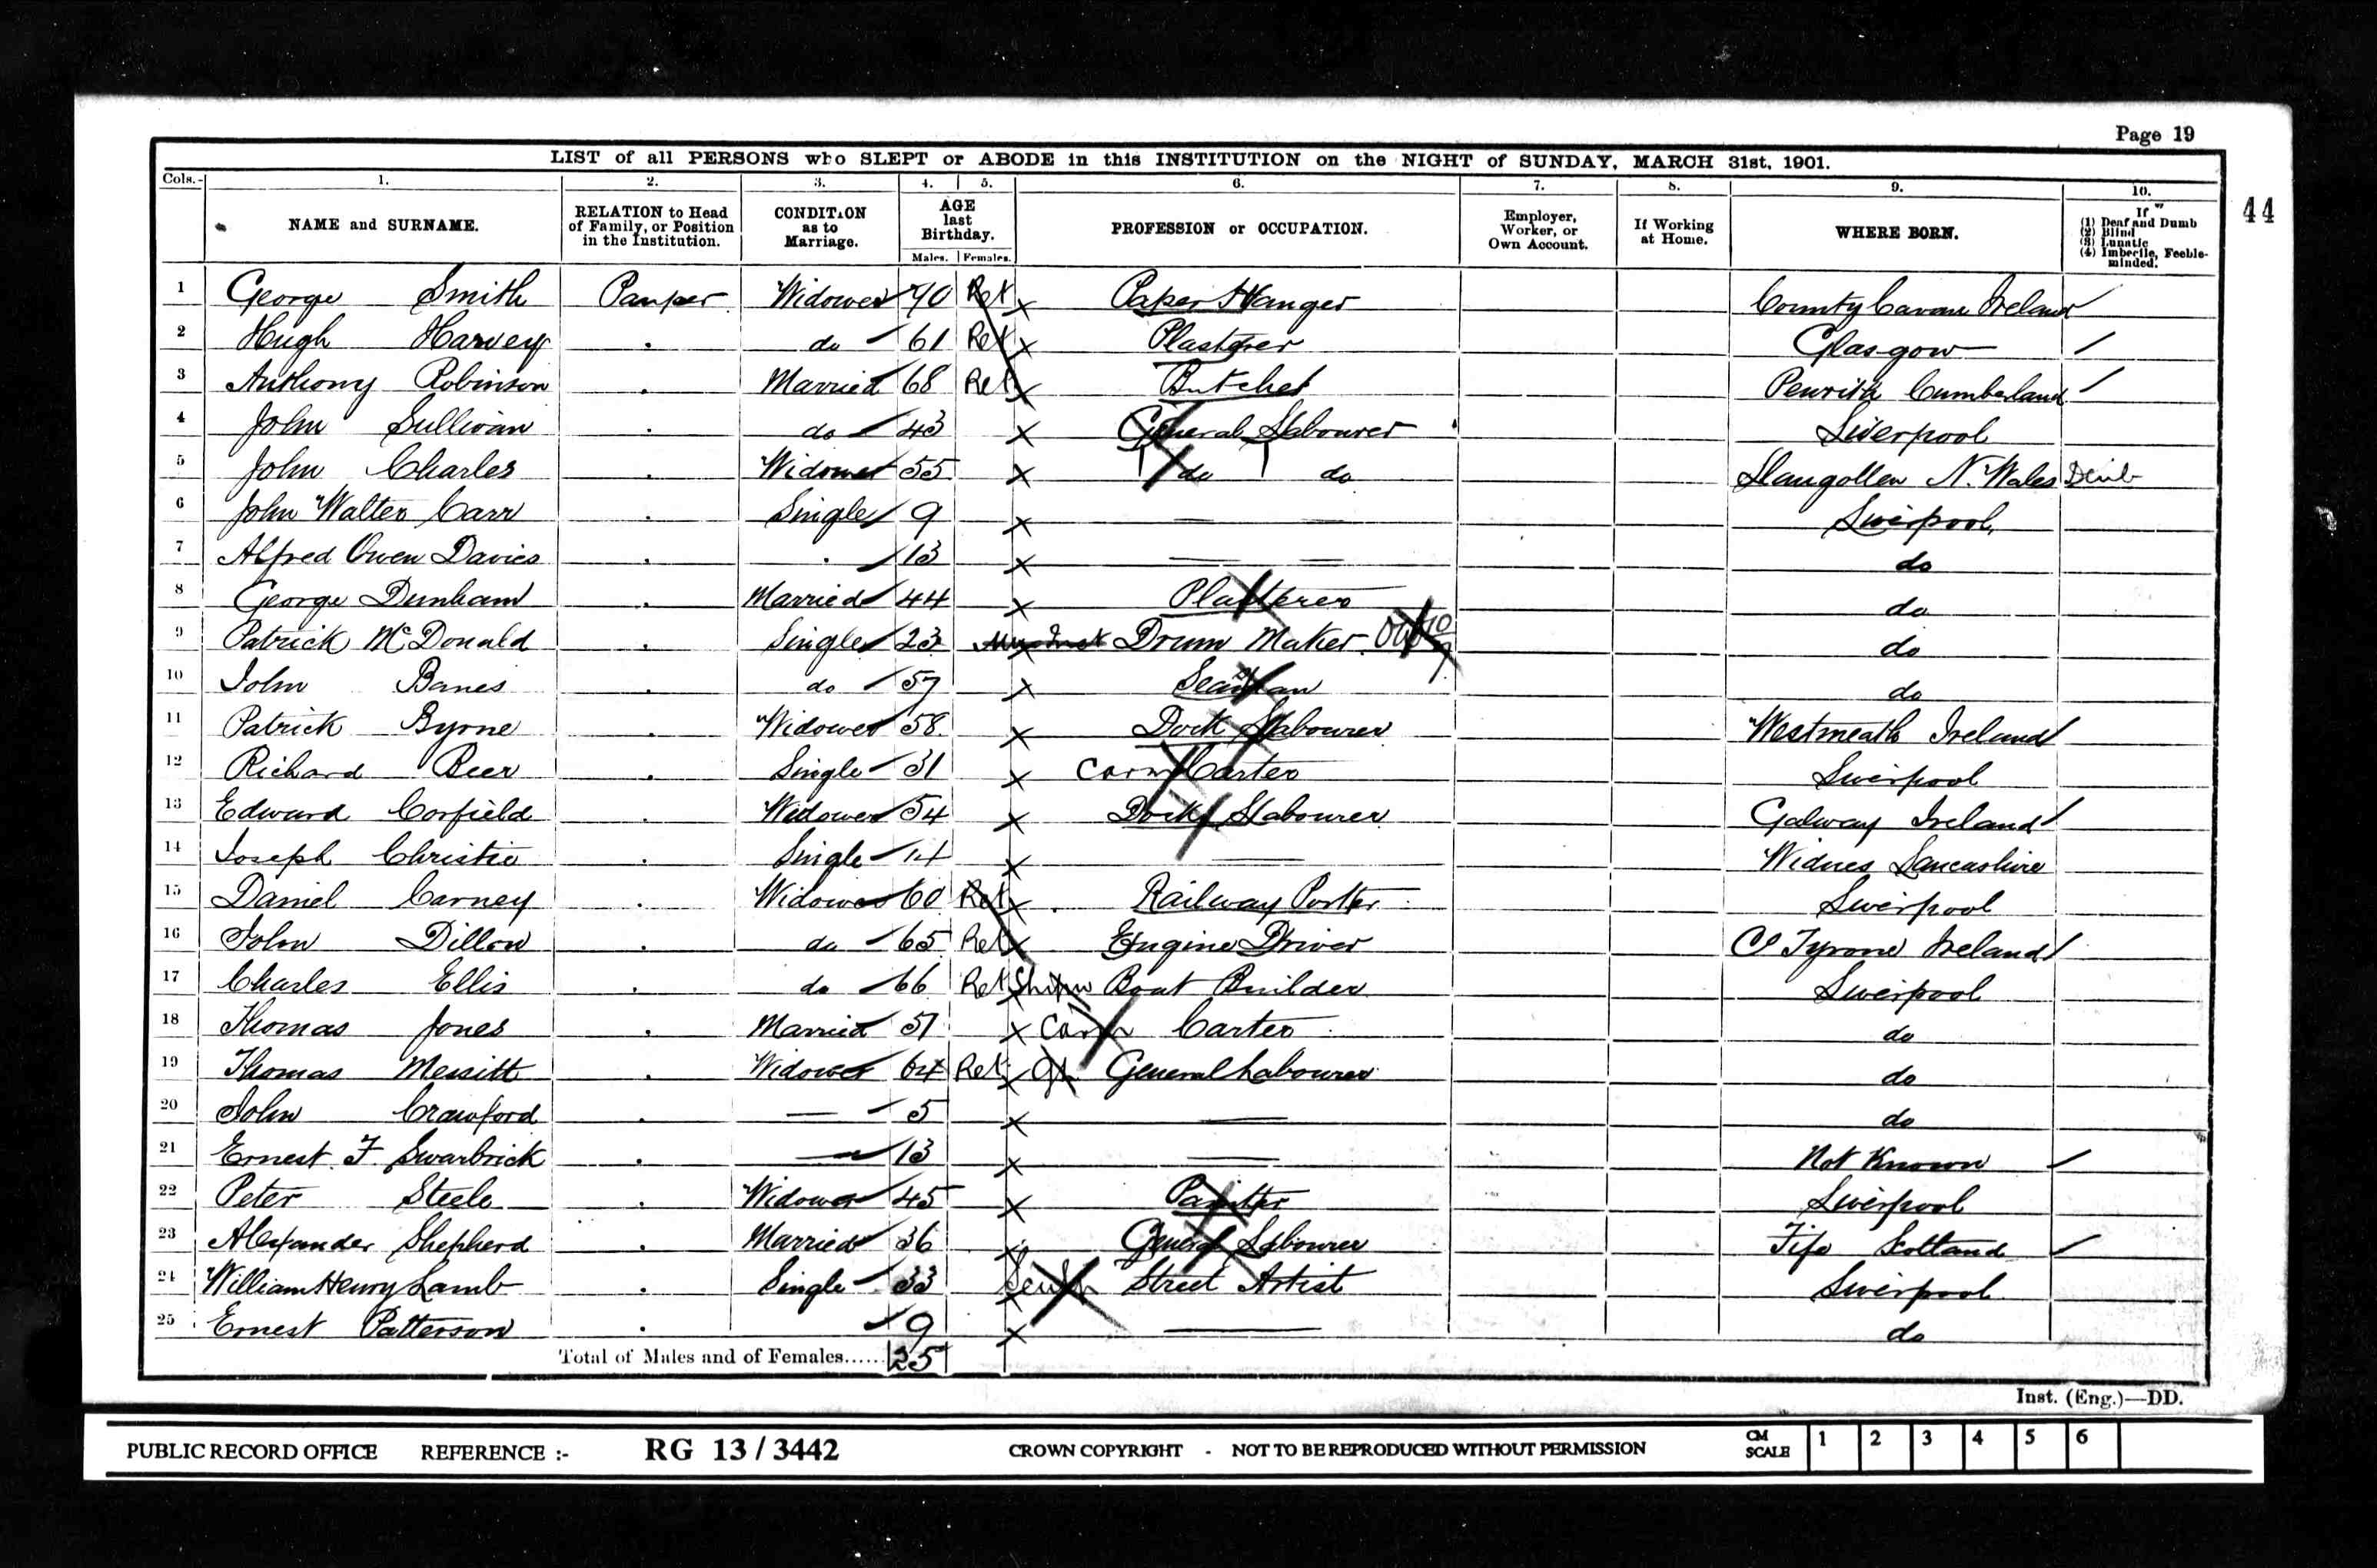 Page 19
LIST of all PERSONS who SLEPT or ABODE in this INSTITUTION on the NIGHT of SUNDAY, MARCH 31st, 1901.
Cols.- 1. 2. 3. 4. 5. 6. 7. 8. 9. 10.
NAME and SURNAME. RELATION to Head of Family, or Position in the Institution. CONDITION as to Marriage. AGE last Birthday. Males. Females. PROFESSION or OCCUPATION. Employer, Worker, or Own Account. If Working at Home. WHERE BORN. If (1) Deaf and Dumb (2) Blind (3) Lunatic (4) Imbecile, Feeble-minded.
44
1 George Smith Pauper Widower 70 Ret X Paper Hanger County Cavan Ireland
2 Hugh Harvey . do 61 Ret X Plasterer Glasgow
3 Anthony Robinson . Married 68 Ret X Butcher Penrith Cumberland
4 John Sullivan . do 43 X General Labourer Liverpool
5 John Charles . Widower 55 X do do Llangollen N. Wales Denb
6 John Walter Carr . Single 9 X — — Liverpool
7 Alfred Owen Davies . . 13 X — — do
8 George Dunham . Married 44 X Plasterer do
9 Patrick McDonald . Single 23 Drum Maker do
10 John Banes . do 57 X Seaman do
11 Patrick Byrne . Widower 58 X Dock Labourer Westmeath Ireland
12 Richard Beer . Single 31 X Carm Carter Liverpool
13 Edward Corfield . Widower 54 X Dock Labourer Galway Ireland
14 Joseph Christie . Single 14 X — Widnes Lancashire
15 Daniel Carney . Widower 60 Ret X Railway Porter Liverpool
16 John Dillon . do 65 Ret X Engine Driver Co Tyrone Ireland
17 Charles Ellis . do 66 Ret Boat Builder Liverpool
18 Thomas Jones . Married 51 X Carm Carter do
19 Thomas Messitt . Widower 64 Ret X General Labourer do
20 John Crawford . — 5 X — do
21 Ernest F. Swarbrick . — 13 X — Not Known
22 Peter Steele . Widower 45 X Painter Liverpool
23 Alexander Shepherd . Married 36 X General Labourer Fife Scotland
24 William Henry Lamb . Single 33 Street Artist Liverpool
25 Ernest Patterson . 9 X — do
Total of Males and of Females...... 25
Inst. (Eng.)—DD.
PUBLIC RECORD OFFICE REFERENCE :- RG 13 / 3442 CROWN COPYRIGHT - NOT TO BE REPRODUCED WITHOUT PERMISSION CM SCALE 1 2 3 4 5 6